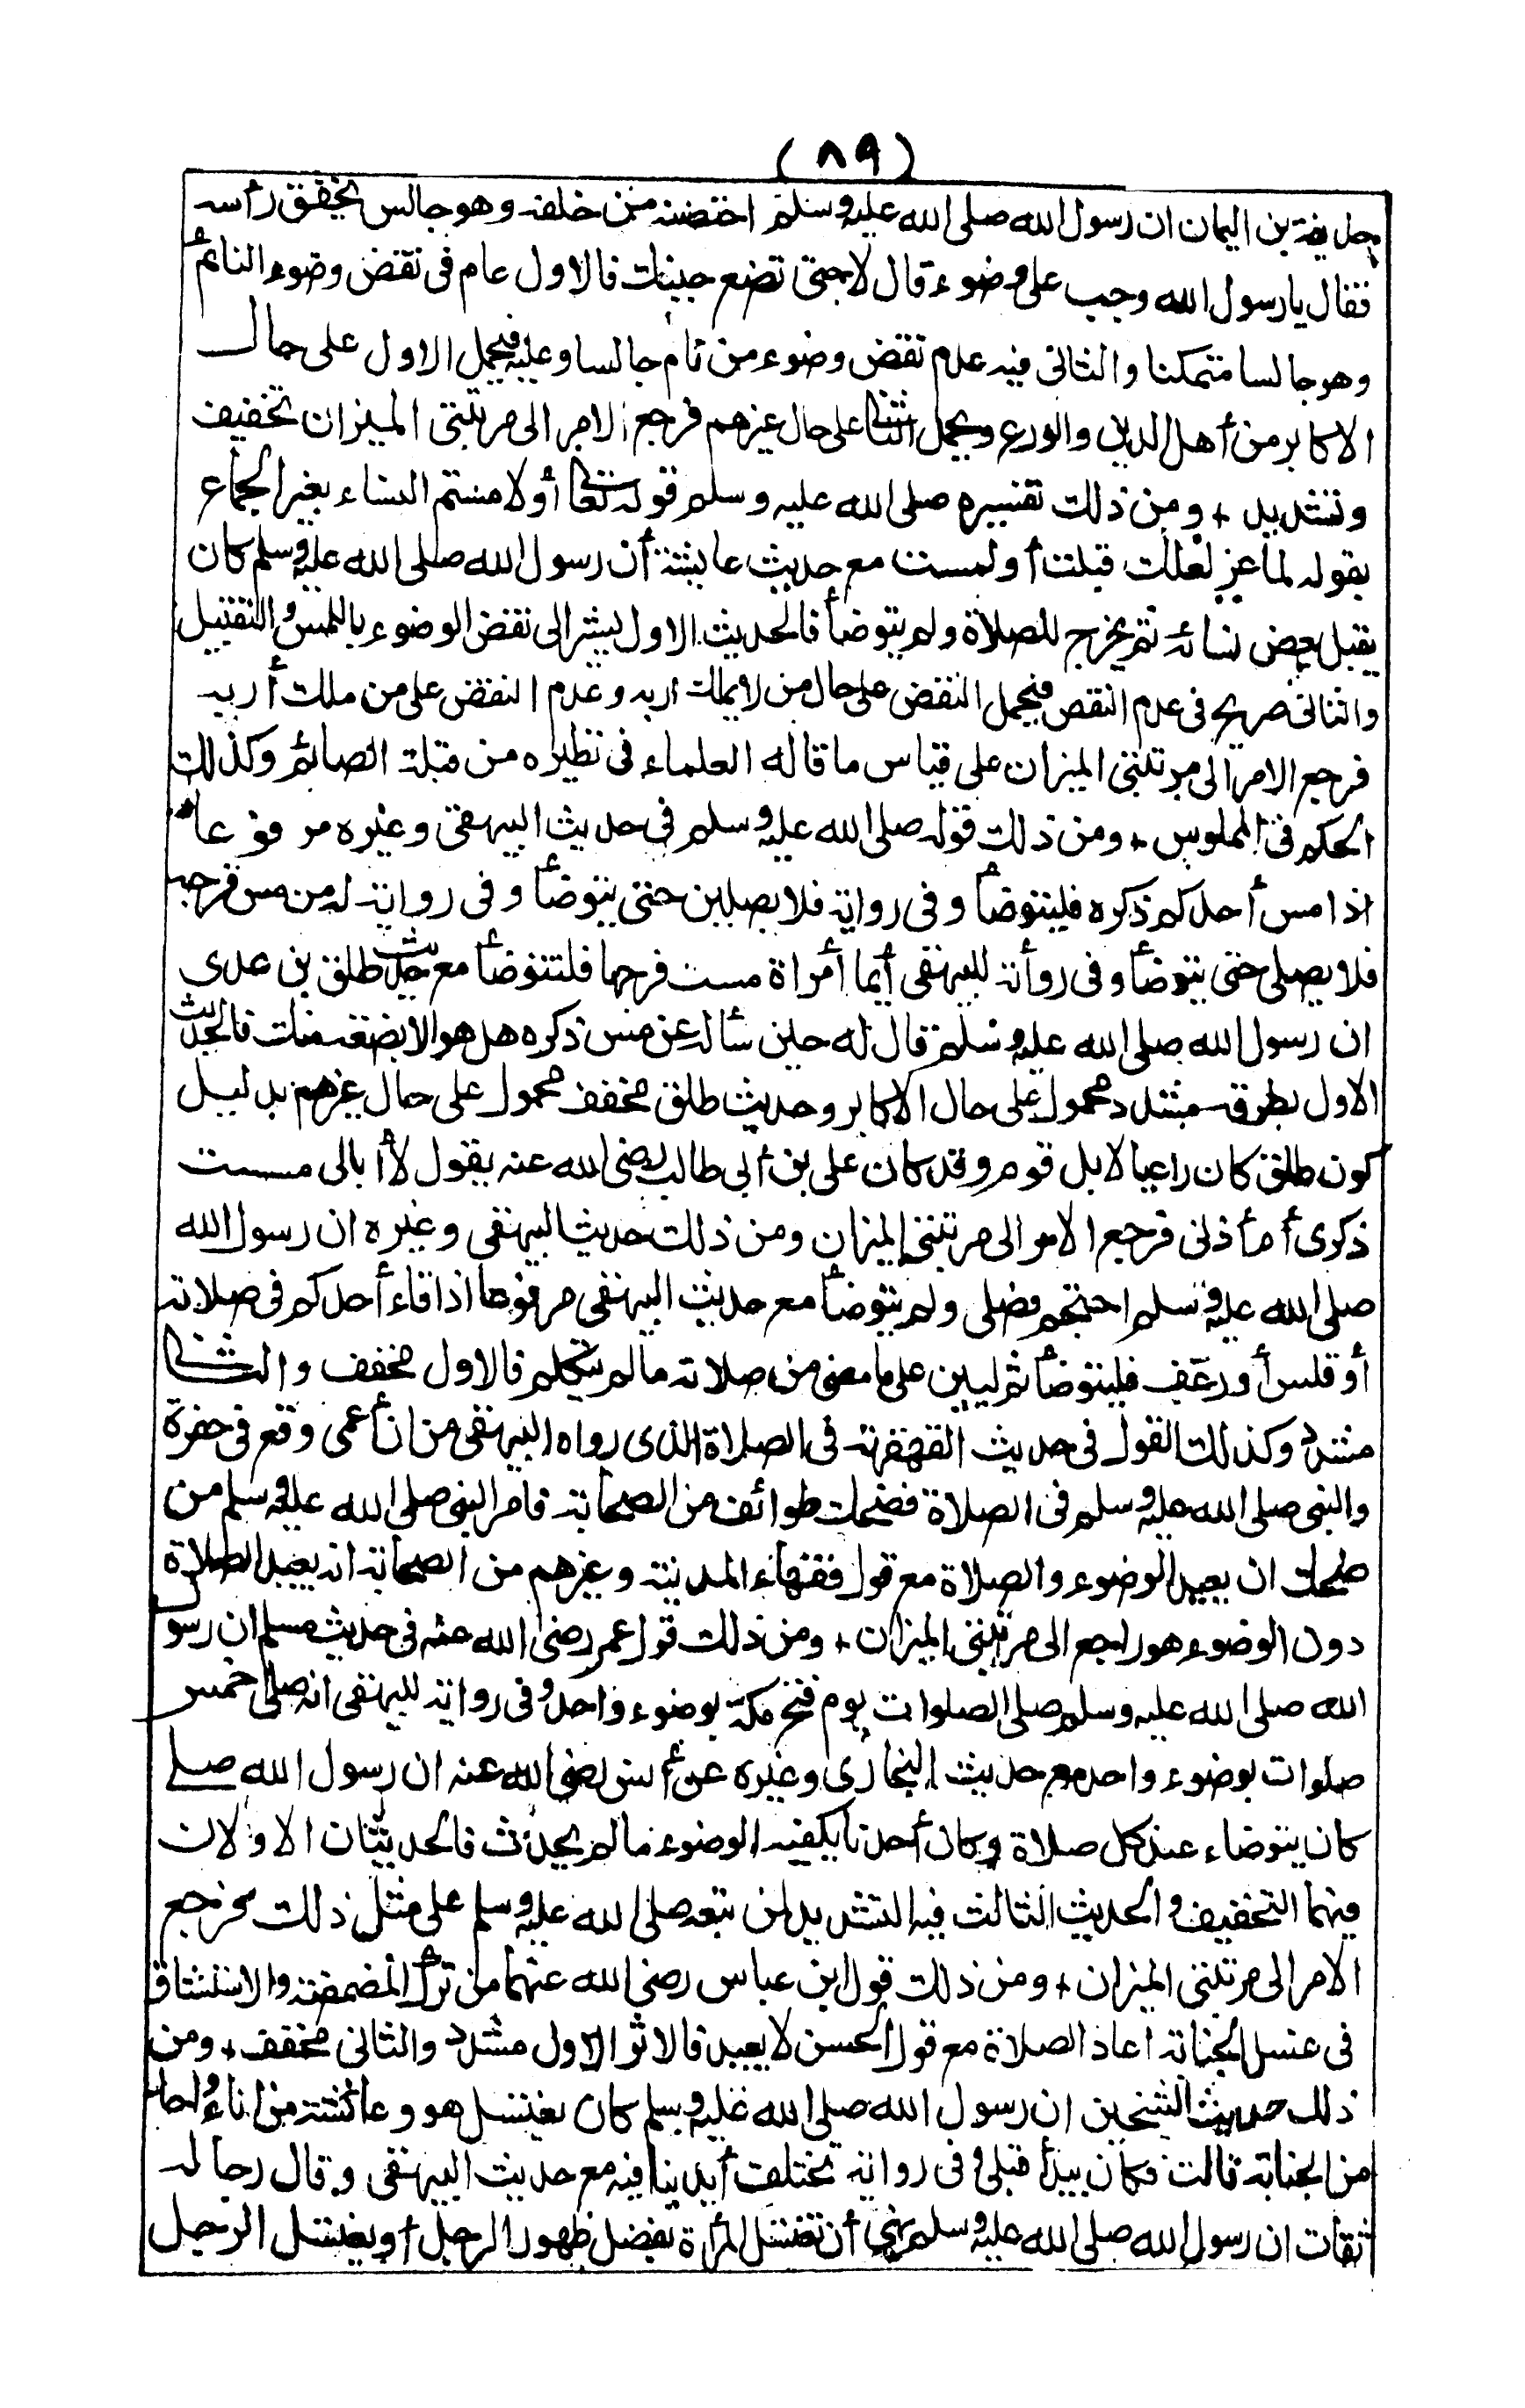 (٨٩)
حذيفة بن اليمان ان رسول الله صلى الله عليه وسلم احتضنه من خلفه وهو جالس يخفق رأسه
فقال يا رسول الله وجب على وضوء قال لا حتى تضع جبينك فالاول عام فى نقض وضوء النائم
وهو جالسا متمكنا والثانى فيه عدم نقض وضوء من نام جالسا وعليه فيحمل الاول على حال
الاكابر من أهل الدين والورع ويحمل الثانى على حال غيرهم فرجع الامر الى مرتبتى الميزان تخفيف
وتشديد + ومن ذلك تفسيره صلى الله عليه وسلم قوله تعالى أو لامستم النساء بغير الجماع
بقوله لماعز لعلك قبلت أو لمست مع حديث عايشة أن رسول الله صلى الله عليه وسلم كان
يقبل بعض نسائه ثم يخرج للصلاة ولم يتوضأ فالحديث الاول يشير الى نقض الوضوء باللمس والتقبيل
والثانى صريح فى عدم النقض فيحمل النقض على حال من لا يملك اربه وعدم النقض على من ملك أربه
فرجع الامر الى مرتبتى الميزان على قياس ما قاله العلماء فى نظيره من قبلة الصائم وكذلك
الحكم فى الملموس + ومن ذلك قوله صلى الله عليه وسلم فى حديث البيهقى وغيره مرفوعا
اذا مس أحدكم ذكره فليتوضأ وفى رواية فلا يصلين حتى يتوضأ وفى رواية له من مس فرجه
فلا يصلى حتى يتوضأ وفى رواية للبيهقى أيما أمراة مست فرجها فلتتوضأ مع حديث طلق بن عدى
ان رسول الله صلى الله عليه وسلم قال له حين سأله عن مس ذكره هل هو الا بضعة منك فالحديث
الاول بطرقه مشدد محمول على حال الاكابر وحديث طلق مخفف محمول على حال غيرهم بدليل
كون طلق كان راعيا لابل قومه وقد كان على بن أبى طالب رضى الله عنه يقول لا أبالى مسست
ذكرى أم أذنى فرجع الامر الى مرتبتى الميزان ومن ذلك حديث البيهقى وغيره ان رسول الله
صلى الله عليه وسلم احتجم فصلى ولم يتوضأ مع حديث البيهقى مرفوعا اذا قاء أحدكم فى صلاته
أو قلس أو رعف فليتوضأ ثم ليبن على ما مضى من صلاته ما لم يتكلم فالاول مخفف والثانى
مشدد وكذلك القول فى حديث القهقهة فى الصلاة الذى رواه البيهقى من ان أعمى وقع فى حفرة
والنبى صلى الله عليه وسلم فى الصلاة فضحك طوائف من الصحابة فامر النبى صلى الله عليه وسلم من
ضحك ان يعيد الوضوء والصلاة مع قول فقهاء المدينة وغيرهم من الصحابة انه يعيد الصلاة
دون الوضوء هو راجع الى مرتبتى الميزان + ومن ذلك قول عمر رضى الله عنه فى حديث مسلم ان رسول
الله صلى الله عليه وسلم صلى الصلوات يوم فتح مكة بوضوء واحد وفى رواية للبيهقى انه صلى خمس
صلوات بوضوء واحد مع حديث البخارى وغيره عن أنس رضى الله عنه ان رسول الله صلى
كان يتوضاء عند كل صلاة وكان أحدنا يكفيه الوضوء ما لم يحدث فالحديثان الاولان
فيهما التخفيف والحديث الثالث فيه التشديد لمن تبعه صلى الله عليه وسلم على مثل ذلك فرجع
الامر الى مرتبتى الميزان + ومن ذلك قول ابن عباس رضى الله عنهما من ترك المضمضة والاستنشاق
فى غسل الجنابة اعاد الصلاة مع قول الحسن لا يعيد فالاثر الاول مشدد والثانى مخفف + ومن
ذلك حديث الشيخين ان رسول الله صلى الله عليه وسلم كان يغتسل هو وعائشة من اناء واحد
من الجنابة قالت فكان يبدأ قبلى وفى رواية تختلف أيدينا فيه مع حديث البيهقى وقال رجاله
ثقات ان رسول الله صلى الله عليه وسلم نهى أن تغتسل المرأة بفضل طهور الرجل أو يغتسل الرجل